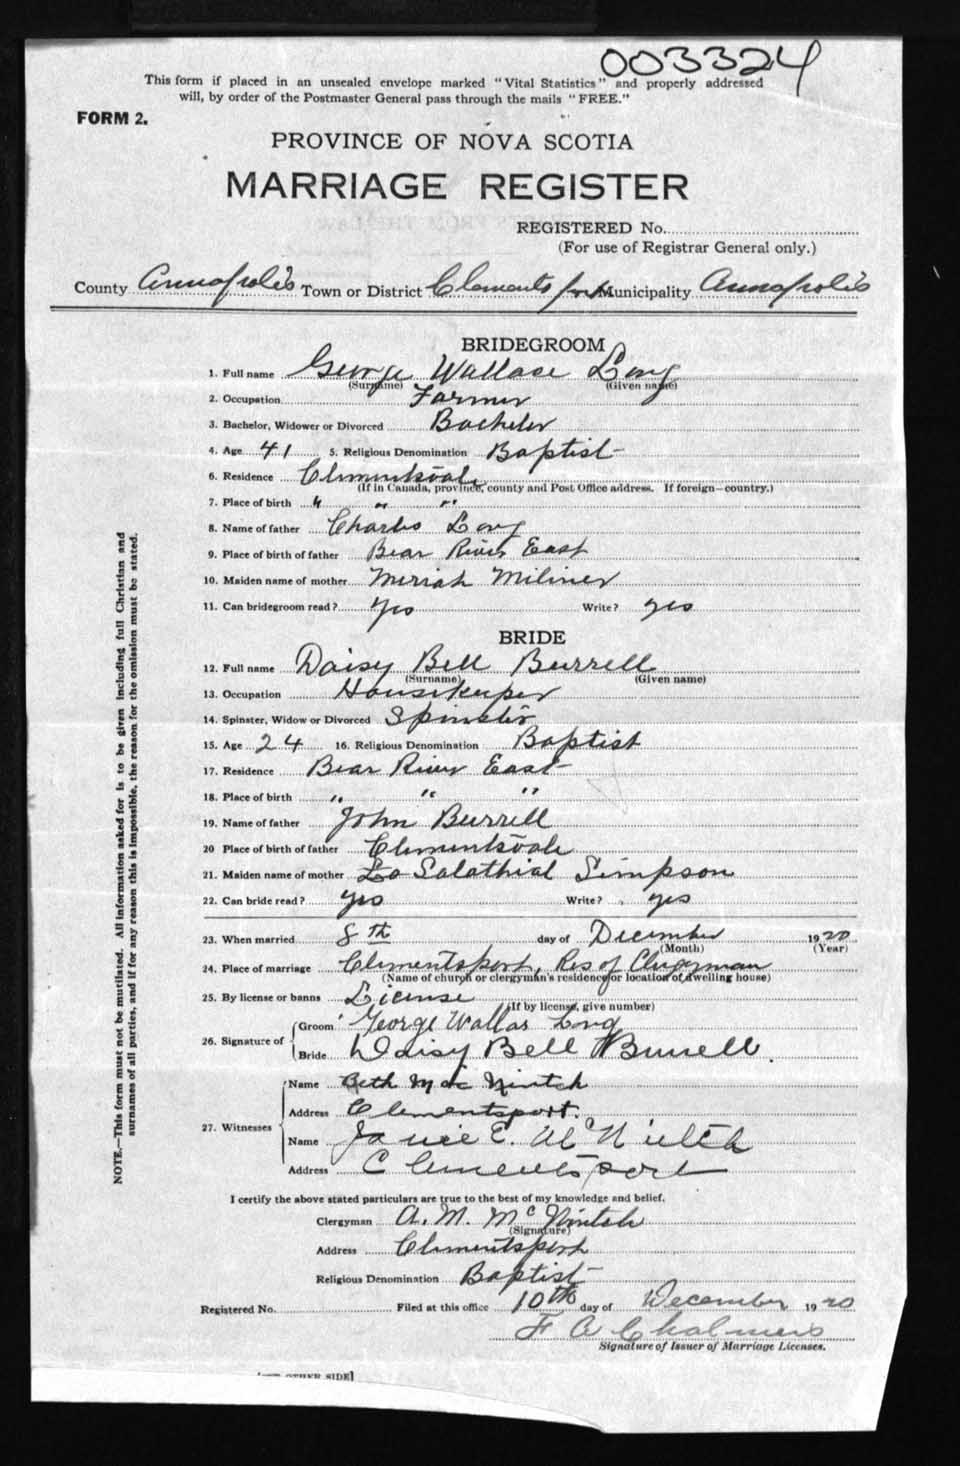 003324
This form if placed in an unsealed envelope marked "Vital Statistics" and properly addressed
will, by order of the Postmaster General pass through the mails "FREE."
FORM 2.
PROVINCE OF NOVA SCOTIA
MARRIAGE REGISTER
REGISTERED No.
(For use of Registrar General only.)
County Annapolis Town or District Clementsport Municipality Annapolis
BRIDEGROOM
1. Full name George Wallace Long
(Surname) (Given name)
2. Occupation Farmer
3. Bachelor, Widower or Divorced Bachelor
4. Age 41 5. Religious Denomination Baptist
6. Residence Clementsvale
(If in Canada, province, county and Post Office address. If foreign—country.)
7. Place of birth " " "
8. Name of father Charles Long
9. Place of birth of father Bear River East
10. Maiden name of mother Meriah Miliner
11. Can bridegroom read? Yes Write? yes
BRIDE
12. Full name Daisy Bell Burrell
(Surname) (Given name)
13. Occupation Housekeeper
14. Spinster, Widow or Divorced Spinster
15. Age 24 16. Religious Denomination Baptist
17. Residence Bear River East
18. Place of birth " " "
19. Name of father John Burrell
20 Place of birth of father Clementsvale
21. Maiden name of mother Salathial Simpson
22. Can bride read? Yes Write? yes
23. When married 8th day of December 1920
(Month) (Year)
24. Place of marriage Clementsport, Res of Clergyman
(Name of church or clergyman's residence or location of dwelling house)
25. By license or banns License
(If by license, give number)
26. Signature of Groom George Wallas Long
Bride Daisy Bell Burrell.
27. Witnesses Name Beth Mac Nintch
Address Clementsport.
Name Janie E. McNintch
Address Clementsport
I certify the above stated particulars are true to the best of my knowledge and belief.
Clergyman A. M. McNintch
(Signature)
Address Clementsport
Religious Denomination Baptist
Registered No. Filed at this office 10th day of December 1920
F A Chalmers
Signature of Issuer of Marriage Licenses.
OTHER SIDE]
NOTE.—This form must not be mutilated. All information asked for is to be given including full Christian and
surnames of all parties, and if for any reason this is impossible, the reason for the omission must be stated.